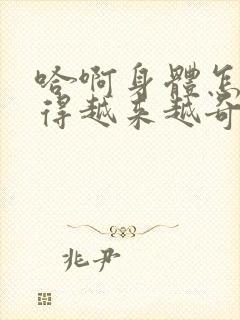 哈啊身體怎
得越来越奇
兆尹